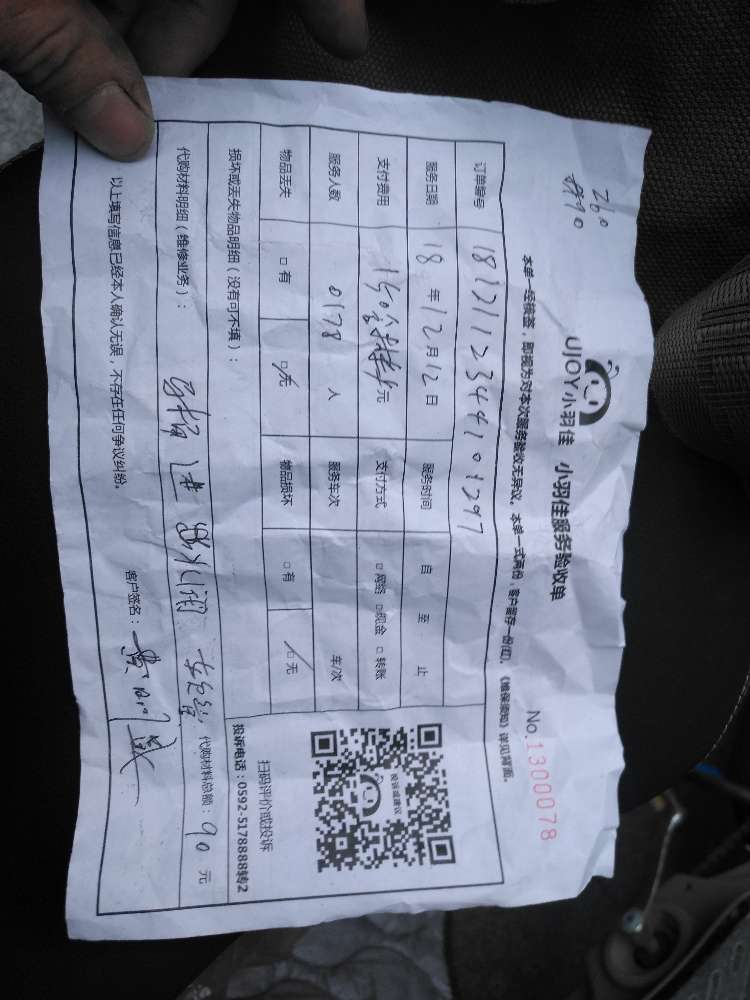 260
UJOY小羽佳 小羽佳服务验收单
No.1300078
本单一经核签，即视为对本次服务验收无异议。本单一式两份，客户留存一份(红)，《维保须知》详见背面。
订单编号 1812112344101297
服务日期 18年12月12日 服务时间 自 至 止
支付费用 元 支付方式 □网络 □现金 □转账
服务人数 0178 人 服务车次 车/次
物品丢失 □有 □无 物品损坏 □有 □无
损坏或丢失物品明细（没有可不填）：
扫码评价或投诉
投诉电话：0592-5178888转2
代购材料明细（维修业务）： 代购材料总额：90 元
以上填写信息已经本人确认无误，不存在任何争议纠纷。
客户签名：